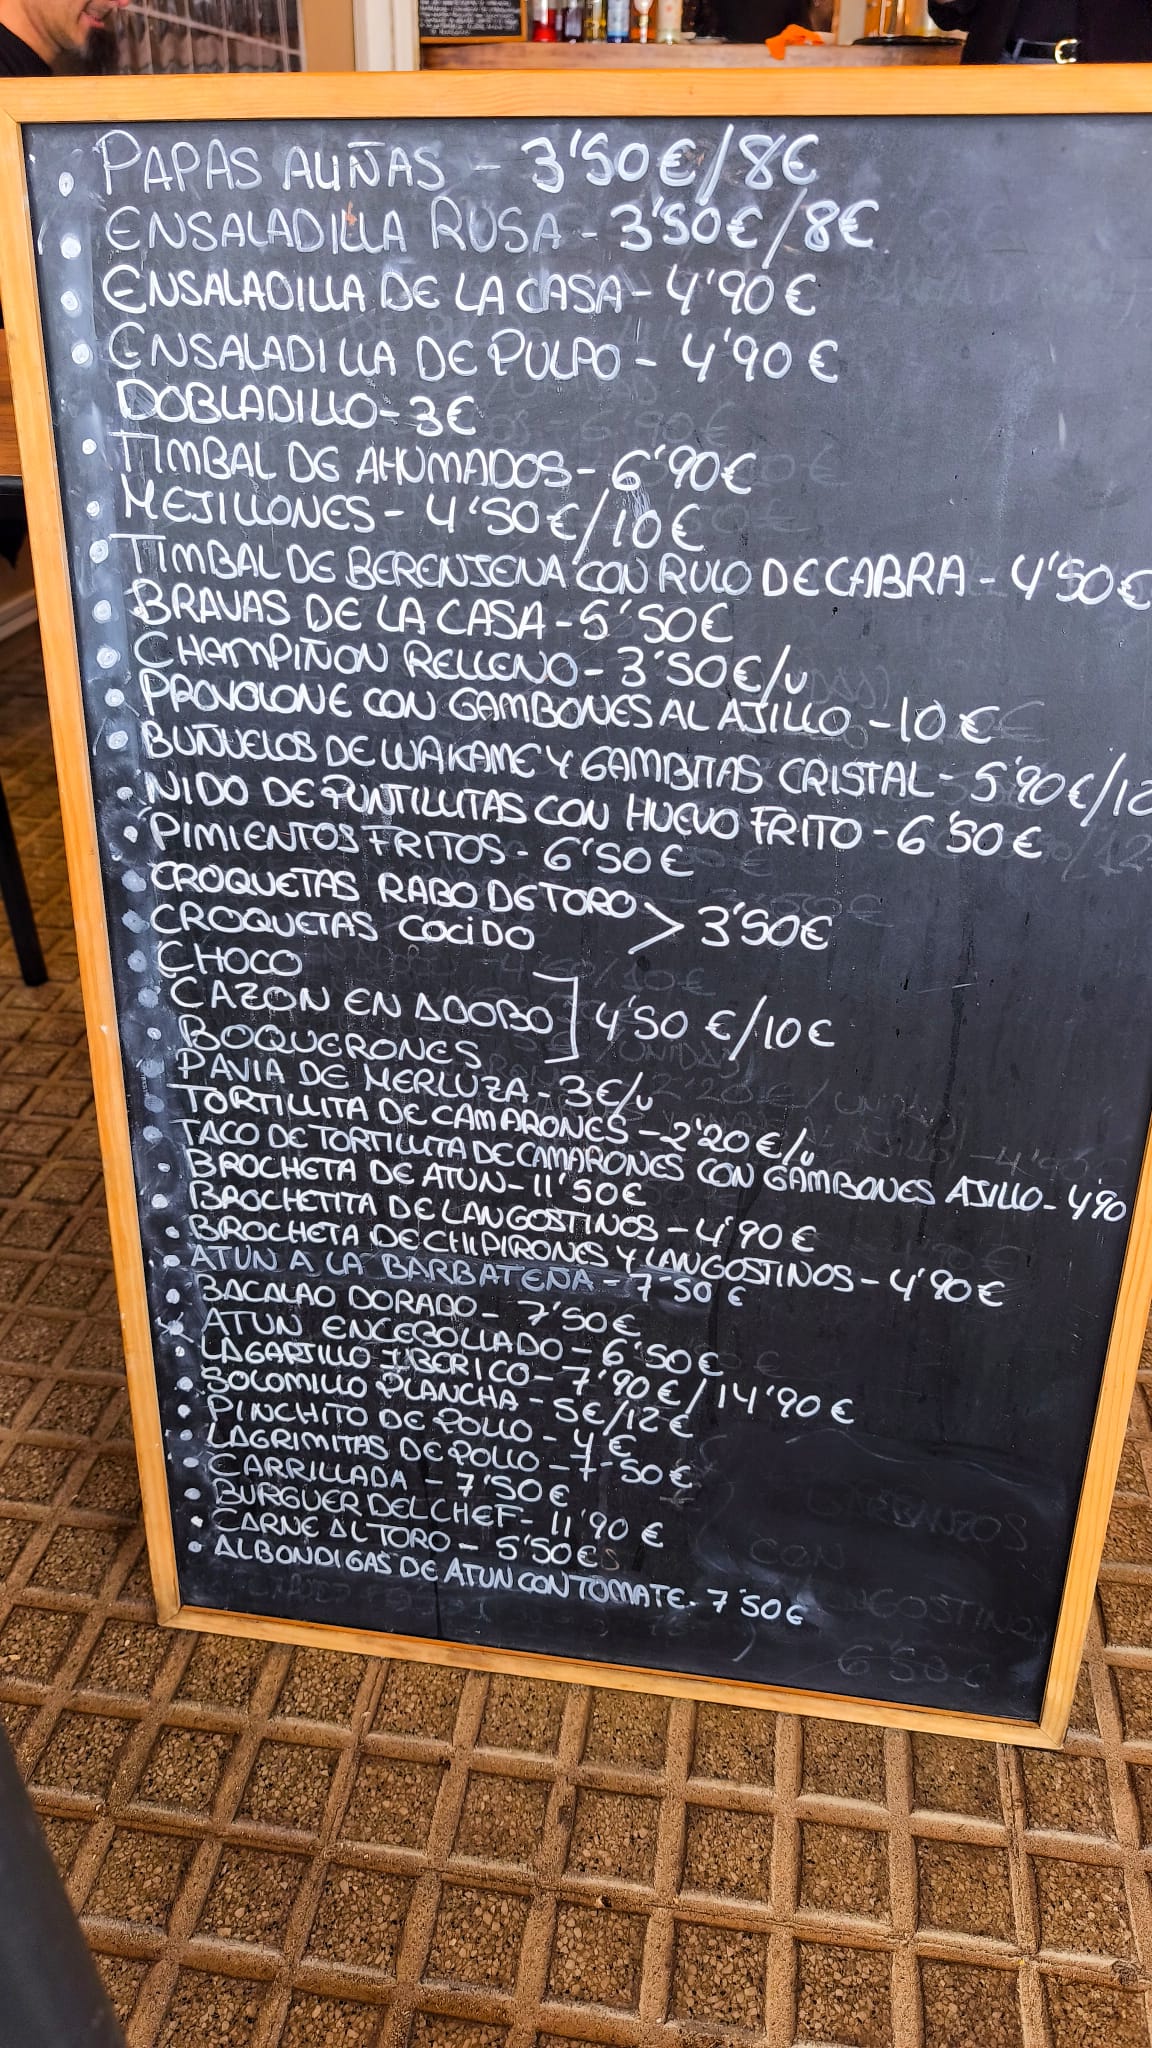 PAPAS ALIÑAS - 3'50€/8€
ENSALADILLA RUSA - 3'50€/8€
ENSALADILLA DE LA CASA - 4'90€
ENSALADILLA DE PULPO - 4'90€
DOBLADILLO - 3€
TIMBAL DE AHUMADOS - 6'90€
MEJILLONES - 4'50€/10€
TIMBAL DE BERENJENA CON RULO DE CABRA - 4'50€
BRAVAS DE LA CASA - 5'50€
CHAMPIÑON RELLENO - 3'50€/u
PROVOLONE CON GAMBONES AL AJILLO - 10€
BUÑUELOS DE WAKAME Y GAMBITAS CRISTAL - 5'90€/12
NIDO DE PUNTILLITAS CON HUEVO FRITO - 6'50€
PIMIENTOS FRITOS - 6'50€
CROQUETAS RABO DE TORO
CROQUETAS COCIDO > 3'50€
CHOCO
CAZON EN ADOBO ] 4'50€/10€
BOQUERONES
PAVIA DE MERLUZA - 3€/u
TORTILLITA DE CAMARONES - 2'20€/u
TACO DE TORTILLITA DE CAMARONES CON GAMBONES AJILLO - 4'90
BROCHETA DE ATUN - 11'50€
BROCHETITA DE LANGOSTINOS - 4'90€
BROCHETA DE CHIPIRONES Y LANGOSTINOS - 4'90€
ATUN A LA BARBATEÑA - 7'50€
BACALAO DORADO - 7'50€
ATUN ENCEBOLLADO - 6'50€
LAGARTILLO IBERICO - 7'90€/14'90€
SOLOMILLO PLANCHA - 5€/12€
PINCHITO DE POLLO - 4€
LAGRIMITAS DE POLLO - 7-50€
CARRILLADA - 7'50€
BURGUER DEL CHEF - 11'90€
CARNE AL TORO - 5'50€
ALBONDIGAS DE ATUN CON TOMATE - 7'50€